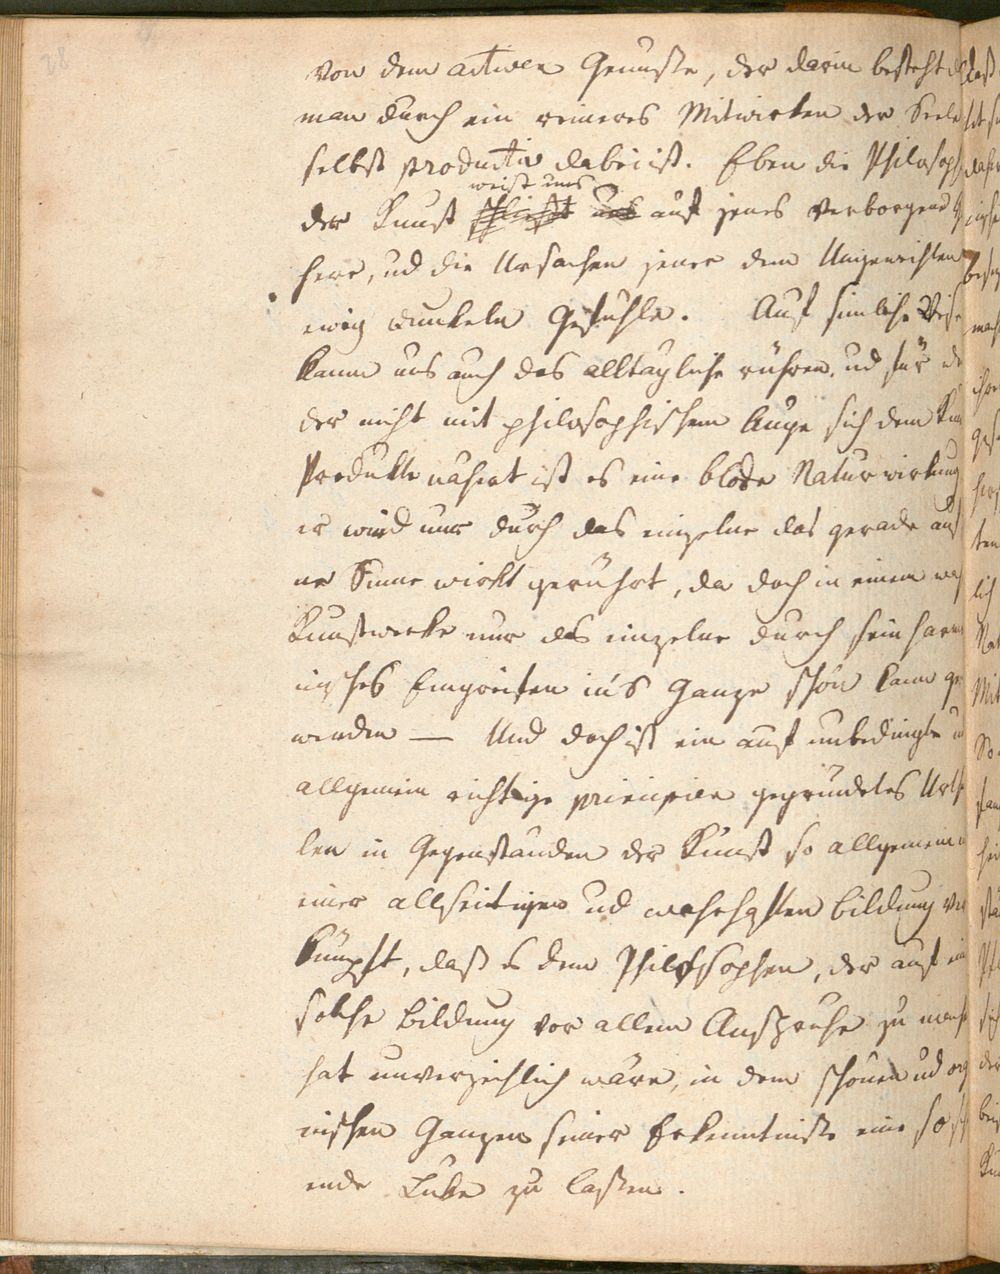 28
von dem activen Genusse, der darin besteht
man durch ein reineres Mitwirken der Seele
selbst productiv dabei ist. Eben die Philosoph
weist uns
der Kunst auf jenes verborgene
here, ud die Ursachen jener dem Ungeweihten
ewig dunkeln Gefühle. Auf sinliche Weise
kann uns auch das alltagliche rühren, ud für
der nicht mit philosophischem Auge sich dem Kun
Produkte nähert ist es eine blosse Naturwirkung
er wird nur durch das einzelne das gerade auf
ne Sinne wirkt gerührt, da doch in einem
Kunstwerke nur das einzelne durch sein harm
nisches Eingreifen in's Ganze schön kann ge
werden — Und doch ist ein auf unbedingte u
allgemein richtige principien gegründetes Urth
len in Gegenstanden der Kunst so allgemein
einer allseitigen ud wahrhaften Bildung ver
knüpft, daß es dem Philosophen, der auf ein
solche Bildung vor allem Anspruche zu mach
hat unverzeihlich wäre, in dem schönen ud org
nischen Ganzen seiner Erkenntnisse eine so
ende Lüke zu lassen.